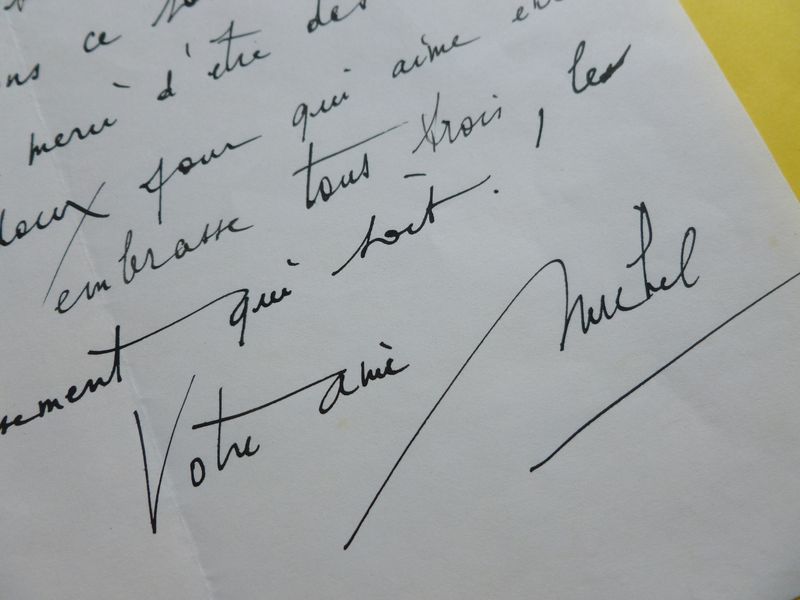 ce
merci d'être des
doux pour qui aime
embrasse tous trois, les
sement qui soit.
Votre ami Michel